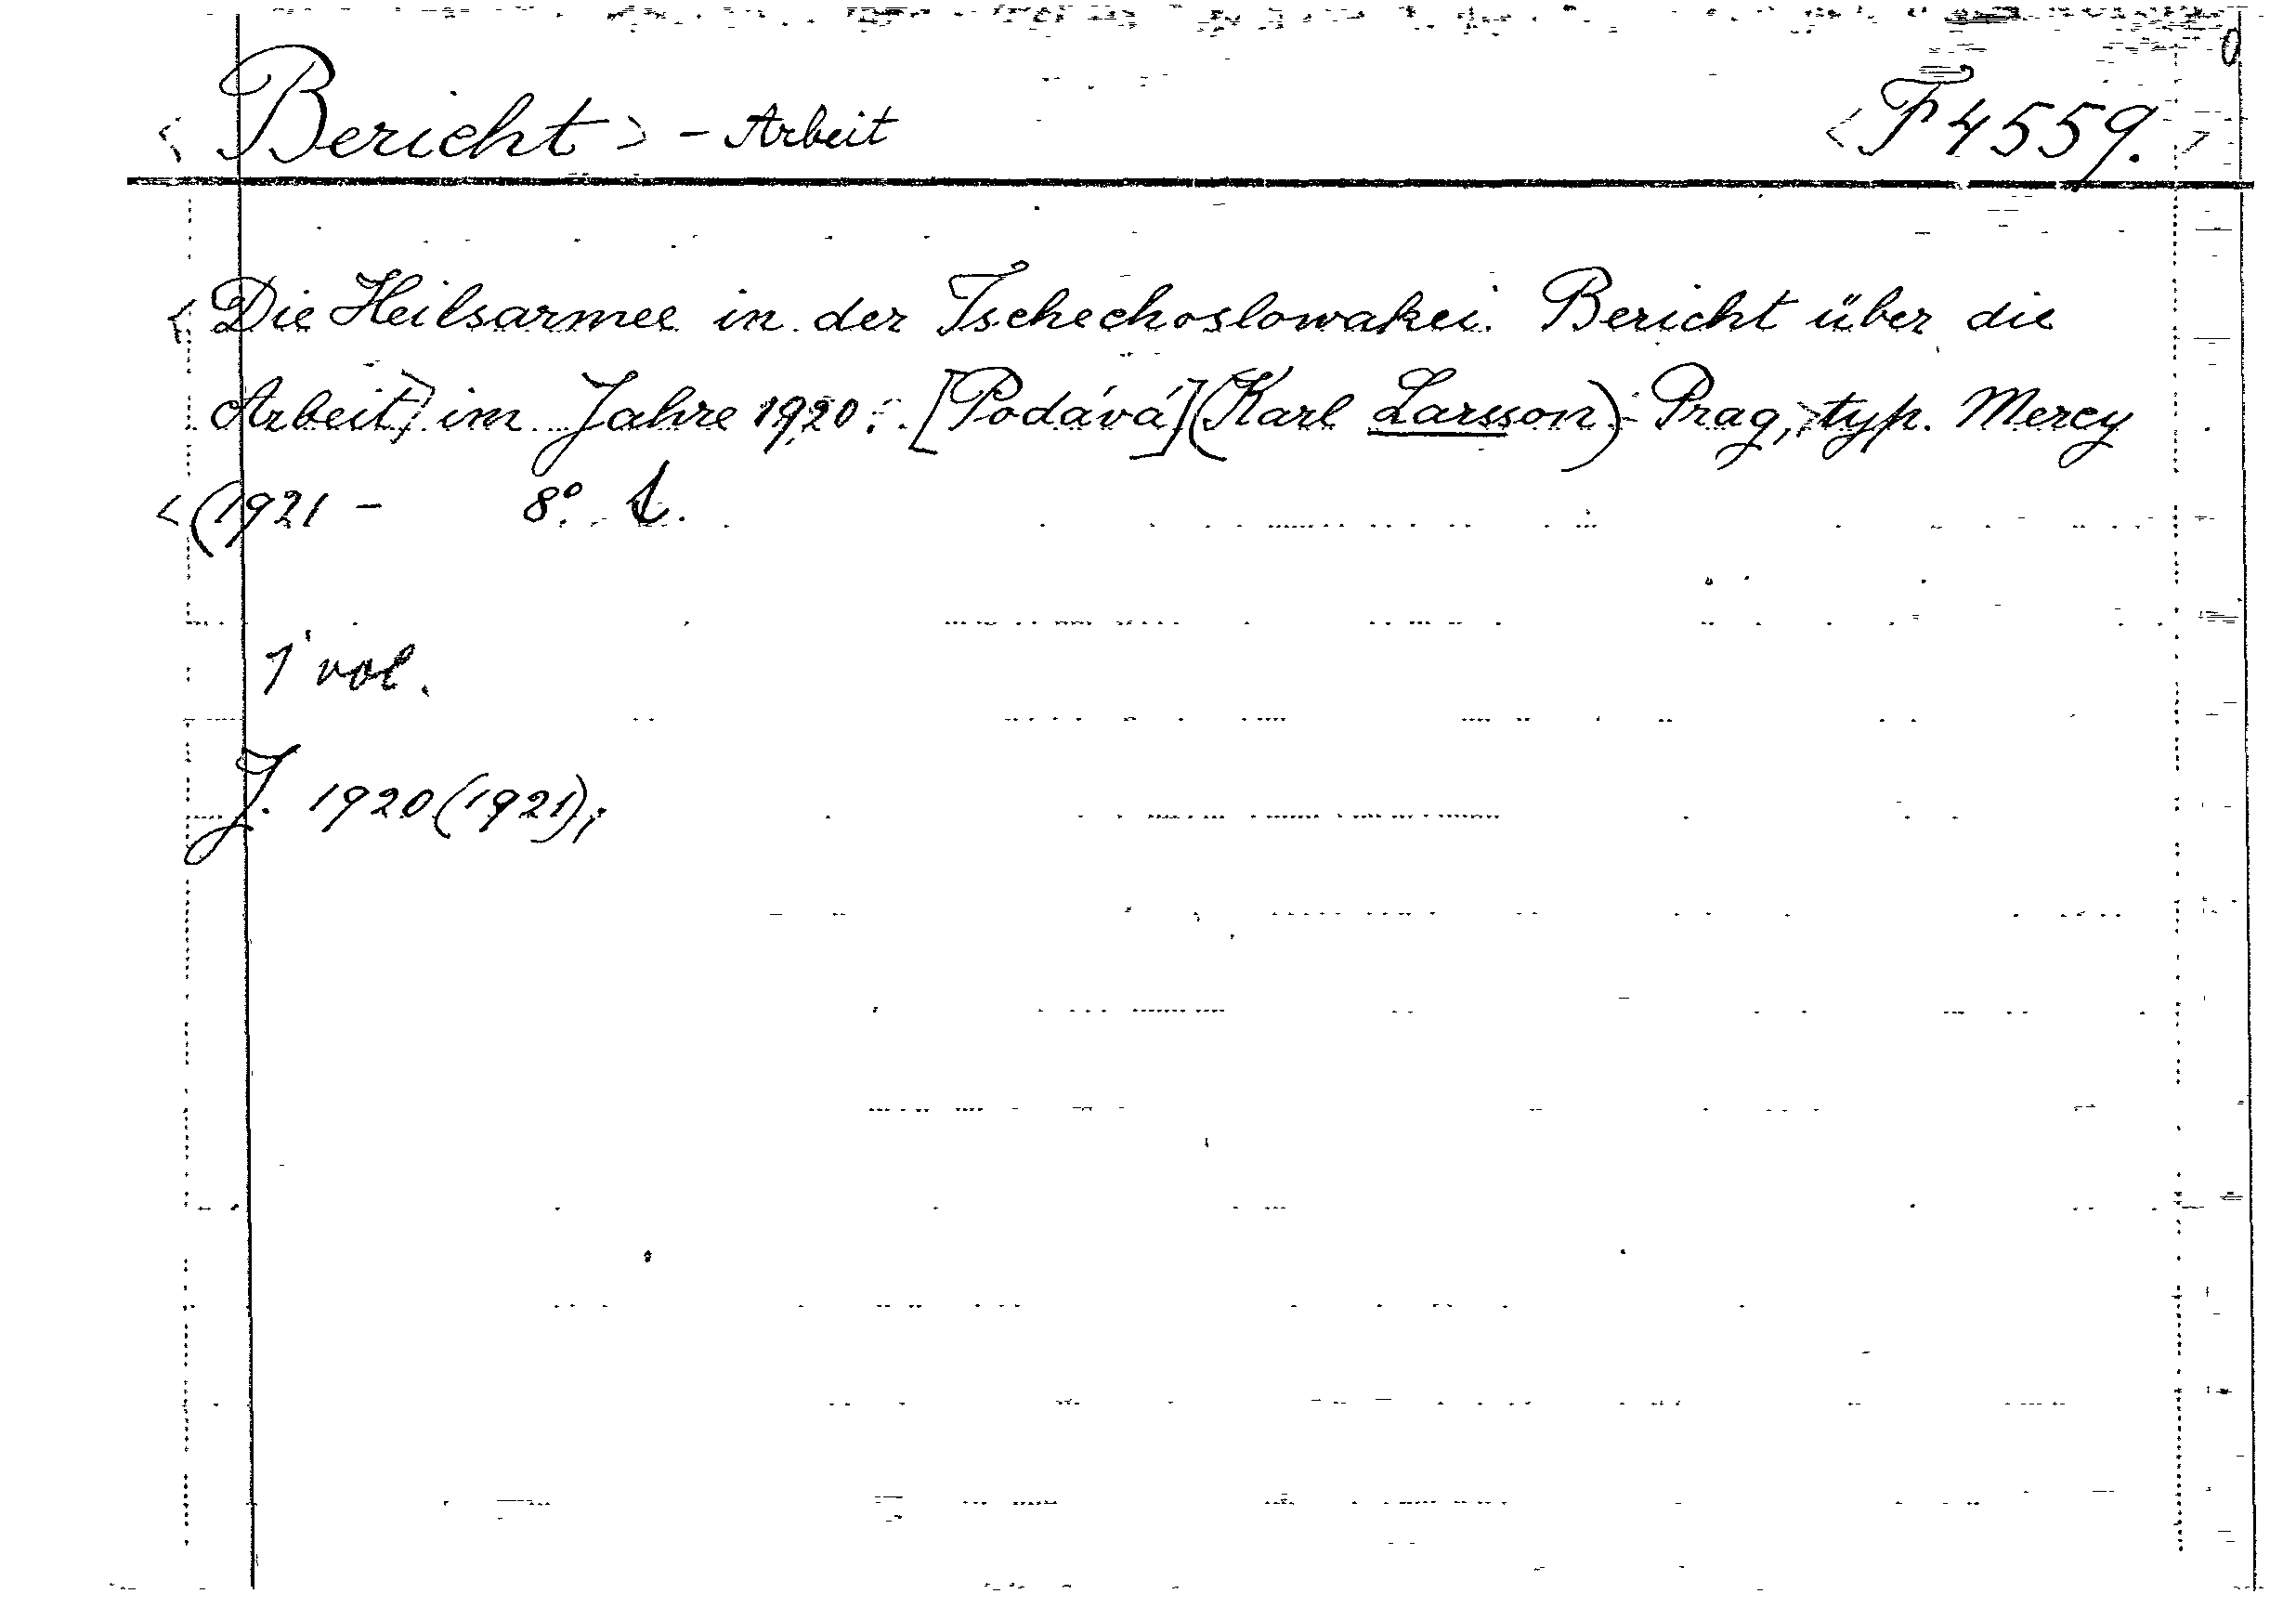 < Bericht > - Arbeit <F 4559.>
< Die Heilsarmee in der Tschechoslowakei. Bericht über die
Arbeit> im Jahre 1920. [Podává] (Karl Larsson) - Prag, > typ. Mercy
< (1921 - 8°.
1 vol.
J. 1920 (1921);